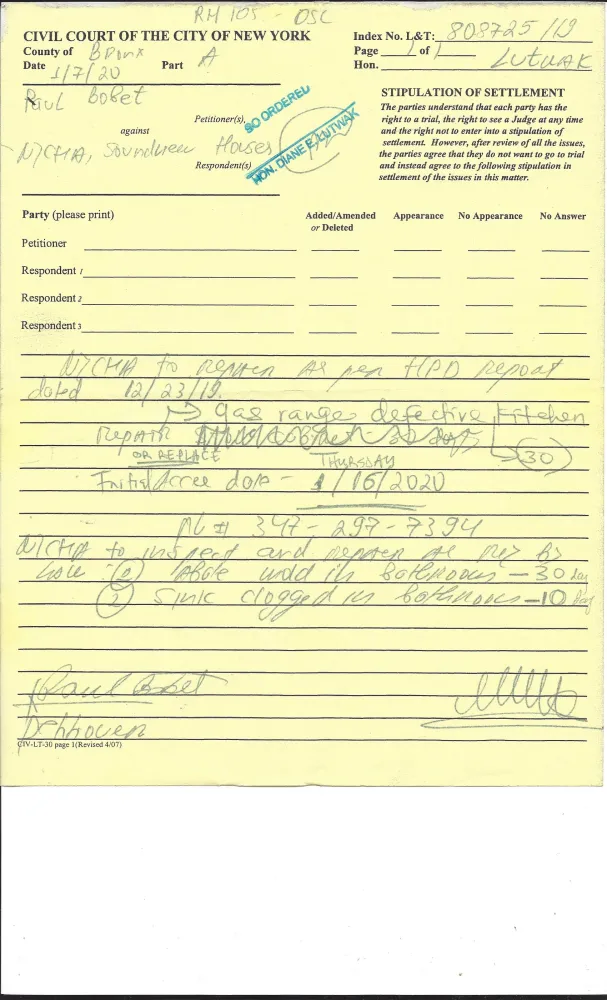 RM 105 - OSC
CIVIL COURT OF THE CITY OF NEW YORK
County of Bronx
Date 1/7/20 Part A
Index No. L&T: 808725/19
Page 1 of 1
Hon. LUTWAK
Paul Bobet
Petitioner(s),
against
NYCHA, Soundview Houses
Respondent(s)
SO ORDERED
HON. DIANE E. LUTWAK
STIPULATION OF SETTLEMENT
The parties understand that each party has the
right to a trial, the right to see a Judge at any time
and the right not to enter into a stipulation of
settlement. However, after review of all the issues,
the parties agree that they do not want to go to trial
and instead agree to the following stipulation in
settlement of the issues in this matter.
Party (please print) Added/Amended Appearance No Appearance No Answer
or Deleted
Petitioner
Respondent 1
Respondent 2
Respondent 3
NYCHA to repair as per HPD Report
dated 12/23/19.
→ gas range defective kitchen
repair 30
OR REPLACE THURSDAY
Initial Access date - 1/16/2020
347-297-7394
NYCHA to inspect and repair as per
Abate mold in bathroom - 30 day
(2) Sink clogged in bathroom - 10 day
Paul Bobet
CIV-LT-30 page 1 (Revised 4/07)